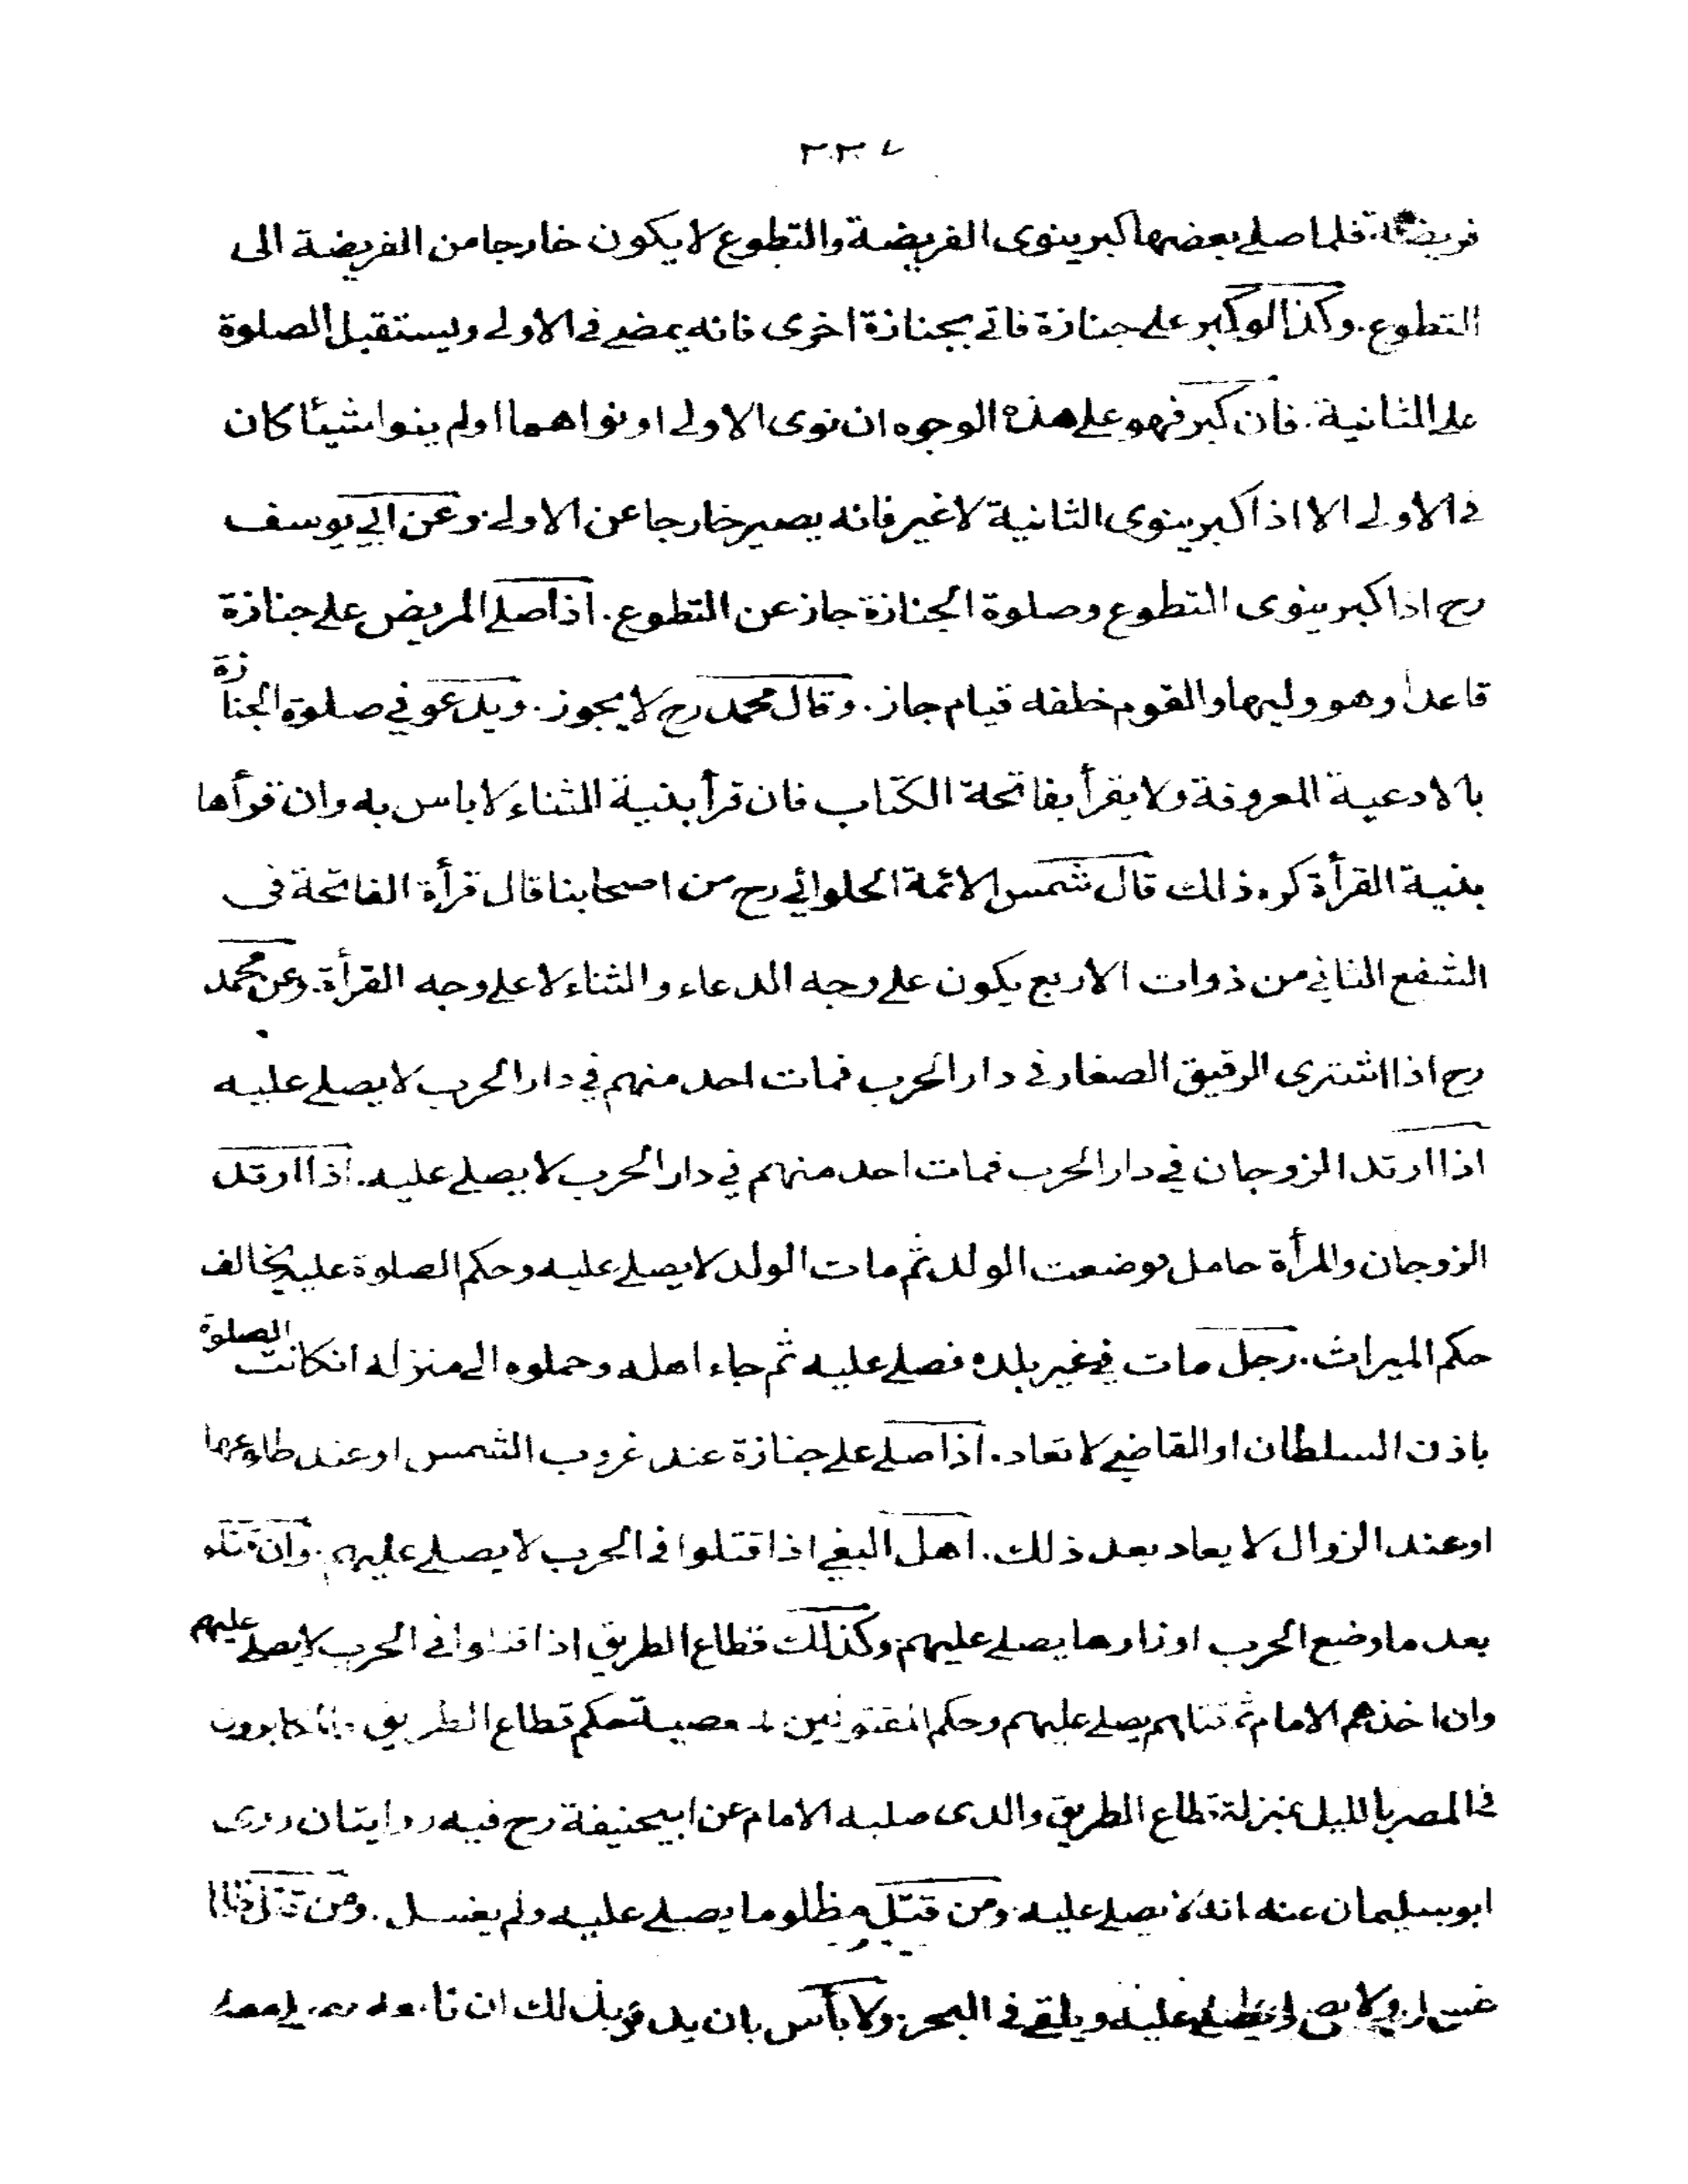 ٣٣٧
فريضة فلما صلے بعضها كبر ينوى الفريضة والتطوع لايكون خارجا من الفريضة الى
التطوع. وكذا لو كبر علے جنازة فاتے بجنازة اخرى فانه يمضے فے الاولے ويستقبل الصلوة
علے الثانية. فان كبر فهو علے هذه الوجوه ان نوى الاولے او نواهما اولم ينوا شيئا كان
فے الاولے الا اذا كبر ينوى الثانية لاغير فانه يصير خارجا عن الاولے. وعن ابي يوسف
رح اذا كبر ينوى التطوع وصلوة الجنازة جاز عن التطوع. اذا صلے المريض علے جنازة
قاعدا وهو وليها والقوم خلفه قيام جاز. وقال محمد رح لا يجوز. ويدعو في صلوة الجنازة
بالادعية المعروفة ولا يقرأ بفاتحة الكتاب فان قرأ بنية الثناء لاباس به وان قرأها
بنية القرأة كره ذلك قال شمس الائمة الحلوائي رح من اصحابنا قال قرأة الفاتحة فى
الشفع الثاني من ذوات الاربع يكون علے وجه الدعاء والثناء لا علے وجه القرأة. وعن محمد
رح اذا اشترى الرقيق الصغار في دار الحرب فمات احد منهم في دار الحرب لايصلے عليه
اذا ارتد الزوجان في دار الحرب فمات احد منهم في دار الحرب لا يصلے عليه. اذا ارتد
الزوجان والمرأة حامل فوضعت الولد ثم مات الولد لايصلے عليه وحكم الصلوة عليه يخالف
حكم الميراث. رجل مات في غير بلده فصلے عليه ثم جاء اهله وحملوه الے منزله انكانت الصلوة
باذن السلطان او القاضے لا تعاد. اذا صلے علے جنازة عند غروب الشمس او عند طلوعها
او عند الزوال لا يعاد بعد ذلك. اهل البغے اذا قتلوا فے الحرب لا يصلے عليهم. وان قتلو
بعد ما وضع الحرب اوزارها يصلے عليهم وكذلك قطاع الطريق اذا قتلوا فى الحرب لايصلے عليهم
وان اخذهم الامام ثم قتلهم يصلے عليهم وحكم المقتولين لمعصية حكم قطاع الطريق. والمكابرون
فے المصر بالليل بمنزلة قطاع الطريق والذى صلبه الامام عن ابيحنيفة رح فيه روايتان روى
ابوسليمان عنه انه لا يصلے عليه. ومن قتل مظلوما يصلے عليه ولم يغسل. ومن قتل ظالما
غسل ولا يصلے عليه ويلقے فے البحر. ولا بأس بان يد